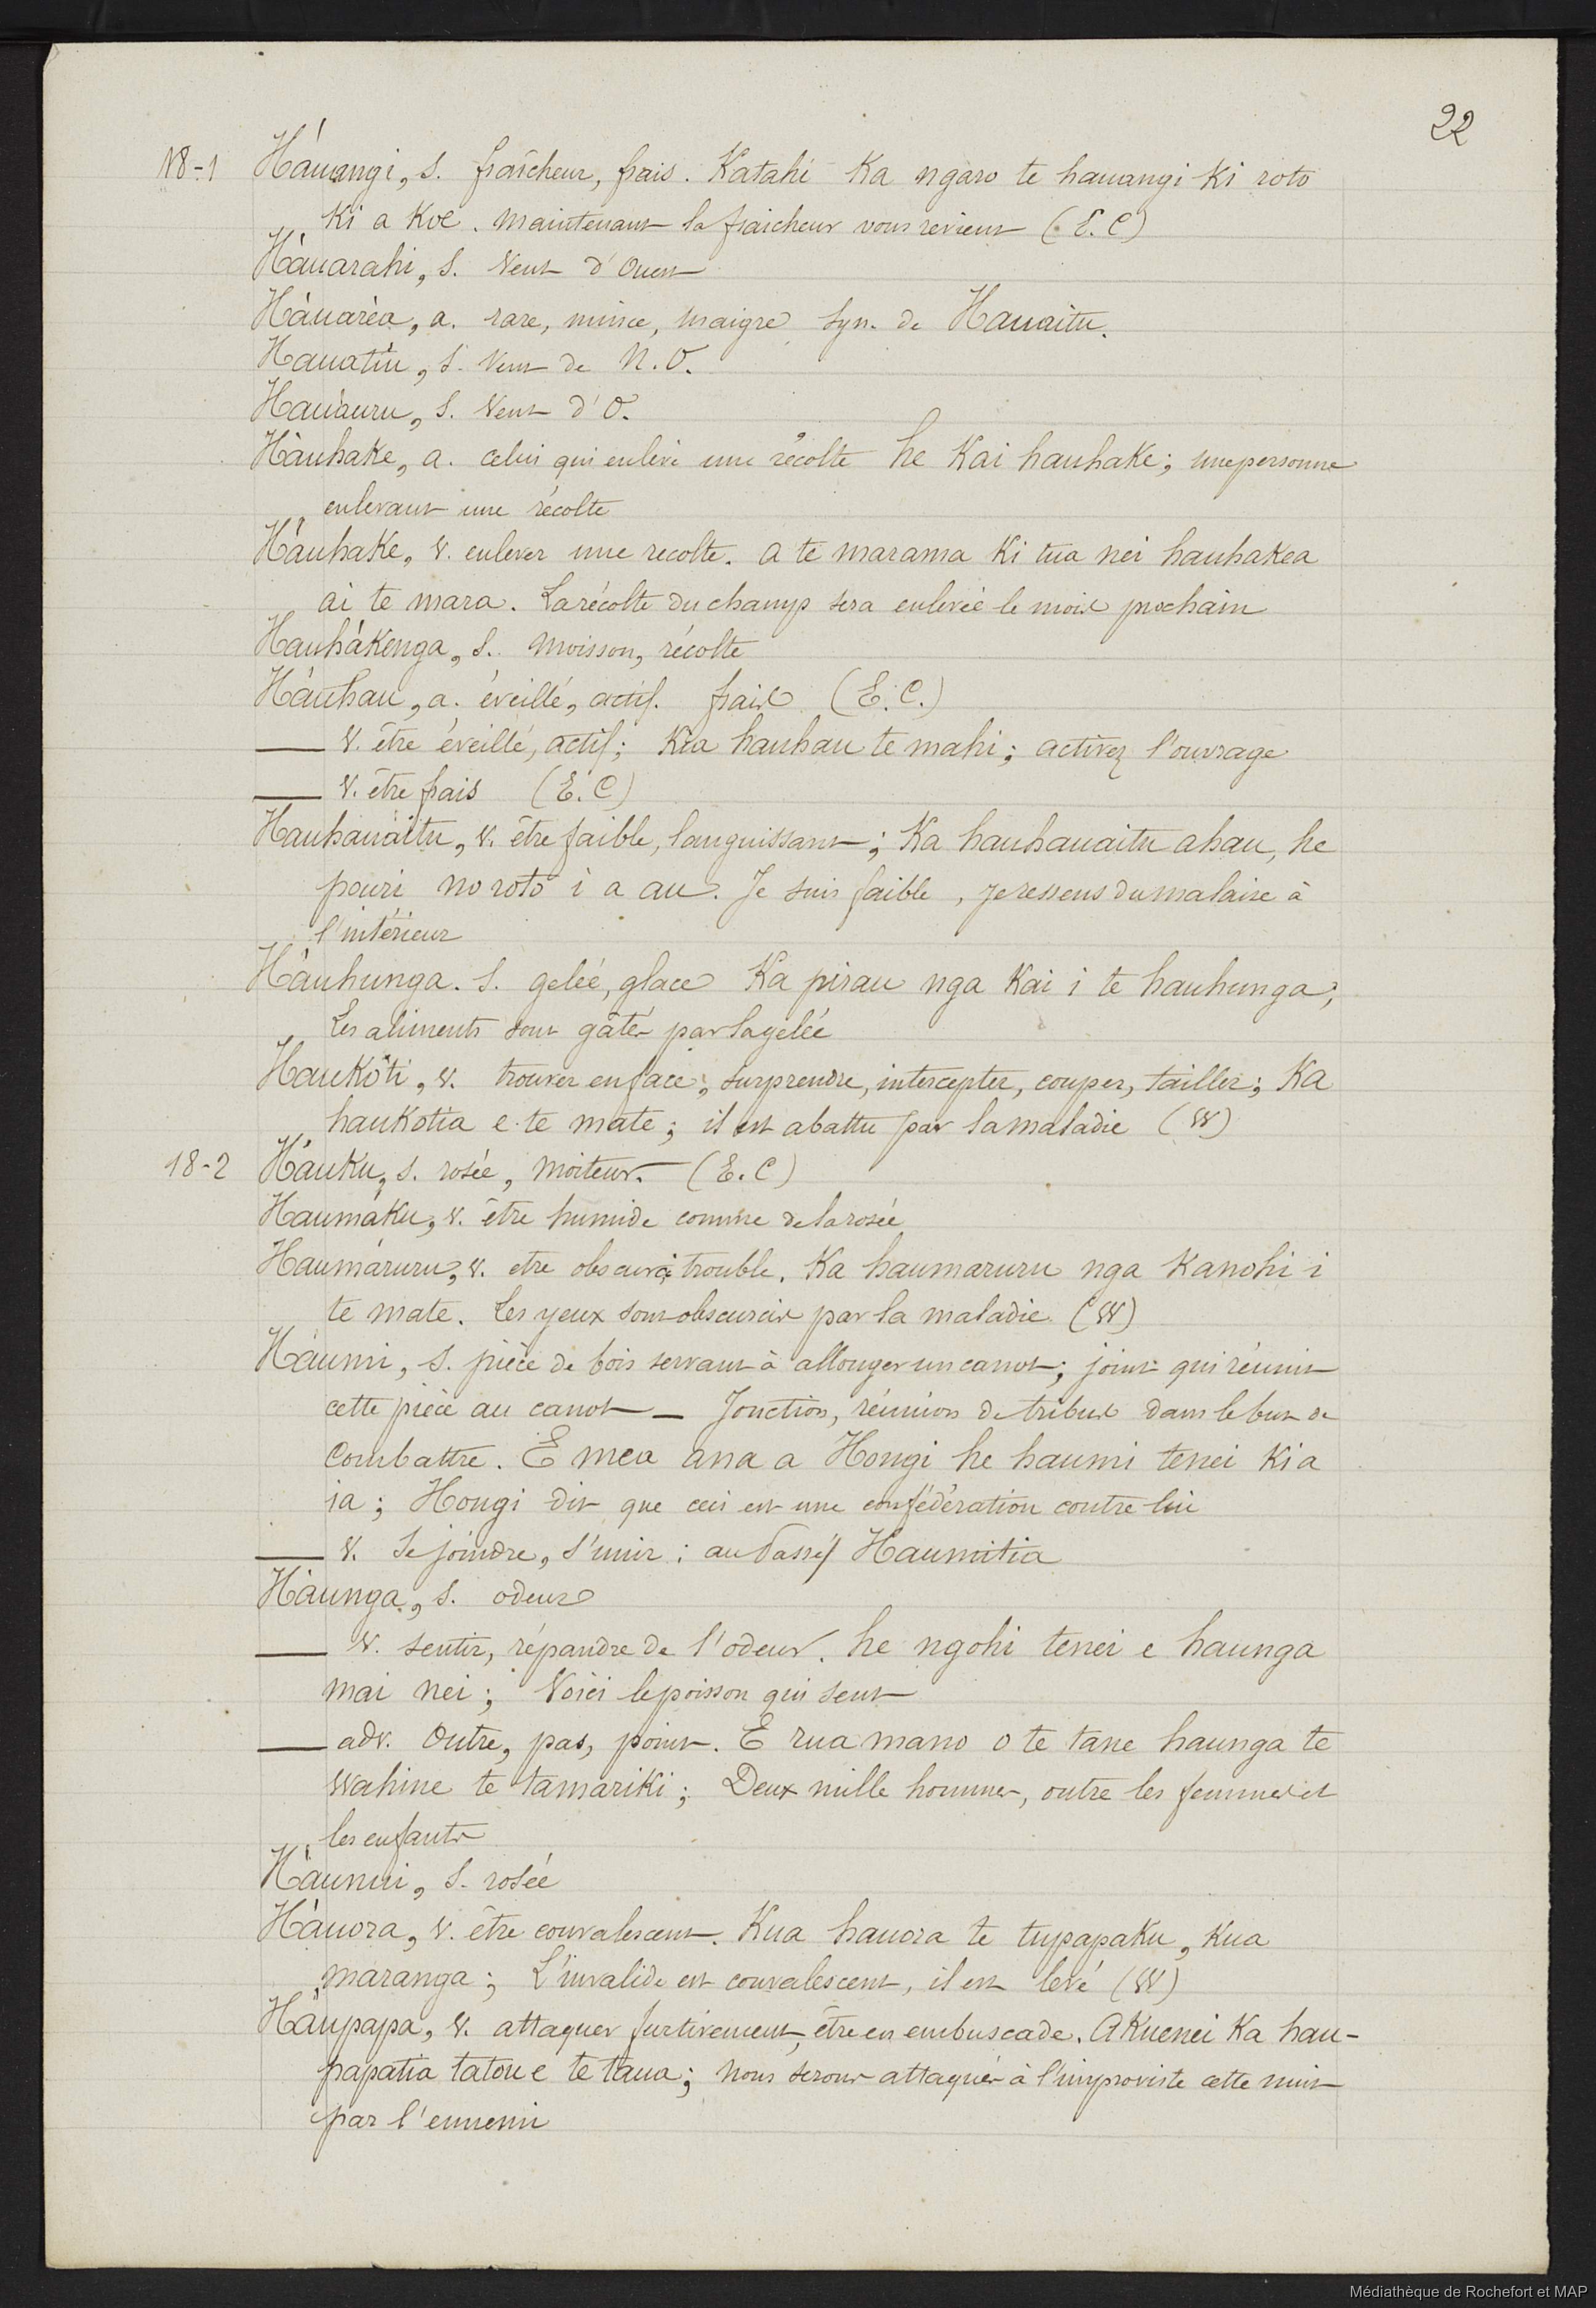 22
18-1 Háuangi, s. fraîcheur, frais. Katahi Ka ngaro te hauangi Ki roto
Ki a Koe. Maintenant la fraicheur vous revient (E. C)
Hàuarahi, s. Vent d'Ouest
Hàuarèa, a. rare, mince, maigre syn. de Hauaitu.
Hauatiu, s. Vent de N. O.
Hauàuru, s. Vent d'O.
Hàuhake, a. celui qui enlève une récolte he Kai hauhake; une personne
enlevant une récolte
Hàuhake, v. enlever une recolte. a te marama Ki tua nei hauhakea
ai te mara. La récolte du champ sera enlevée le mois prochain
Hauhákenga, s. moisson, récolte
Hàuhau, a. éveillé, actif. frais (E. C.)
— v. être éveillé, actif; Kia hauhau te mahi; activez l'ouvrage
— v. être frais (E. C)
Hauhauàitu, v. être faible, languissant; Ka hauhauaitu ahau, he
pouri no roto i a au. Je suis faible, je ressens du malaise à
l'intérieur
Hàuhunga. s. gelée, glace Ka pirau nga Kai i te hauhunga;
Les aliments sont gâtés par la gelée
Haukòti, v. trouver en face; surprendre, intercepter, couper, tailler; Ka
haukotia e te mate; il est abattu par la maladie (W)
18-2 Háuku, s. rosée, moiteur. (E. C)
Haumáku, v. être humide comme de la rosée
Haumáruru, v. etre obscurci trouble. Ka haumaruru nga Kanohi i
te mate. Les yeux sont obscurcis par la maladie (W)
Hàumi, s. pièce de bois servant à allonger un canot; joint qui réunit
cette pièce au canot — Jonction, réunion de tribus dans le but de
Combattre. E mea ana a Hongi he haumi tenei Kia
ia; Hongi dit que ceci est une confédération contre lui
— v. Se joindre, s'unir: au Passé/ Haumitia
Hàunga, s. odeur
— v. sentir, répandre de l'odeur. he ngohi tenei e haunga
mai nei; Voici le poisson qui sent
— adv. Outre, pas, point. E rua mano o te tane haunga te
Wahine te tamariki; Deux mille hommes, outre les femmes et
les enfants
Hàunui, s. rosée
Hàuora, v. être convalescent. Kua hauora te tupapaku, Kua
maranga; L'invalide est convalescent, il est levé (W)
Hàupapa, v. attaquer furtivement, être en embuscade. AKuenei Ka hau-
papatia tatou e te taua; nous serons attaqués à l'improviste cette nuit
par l'ennemi
Médiathèque de Rochefort et MAP